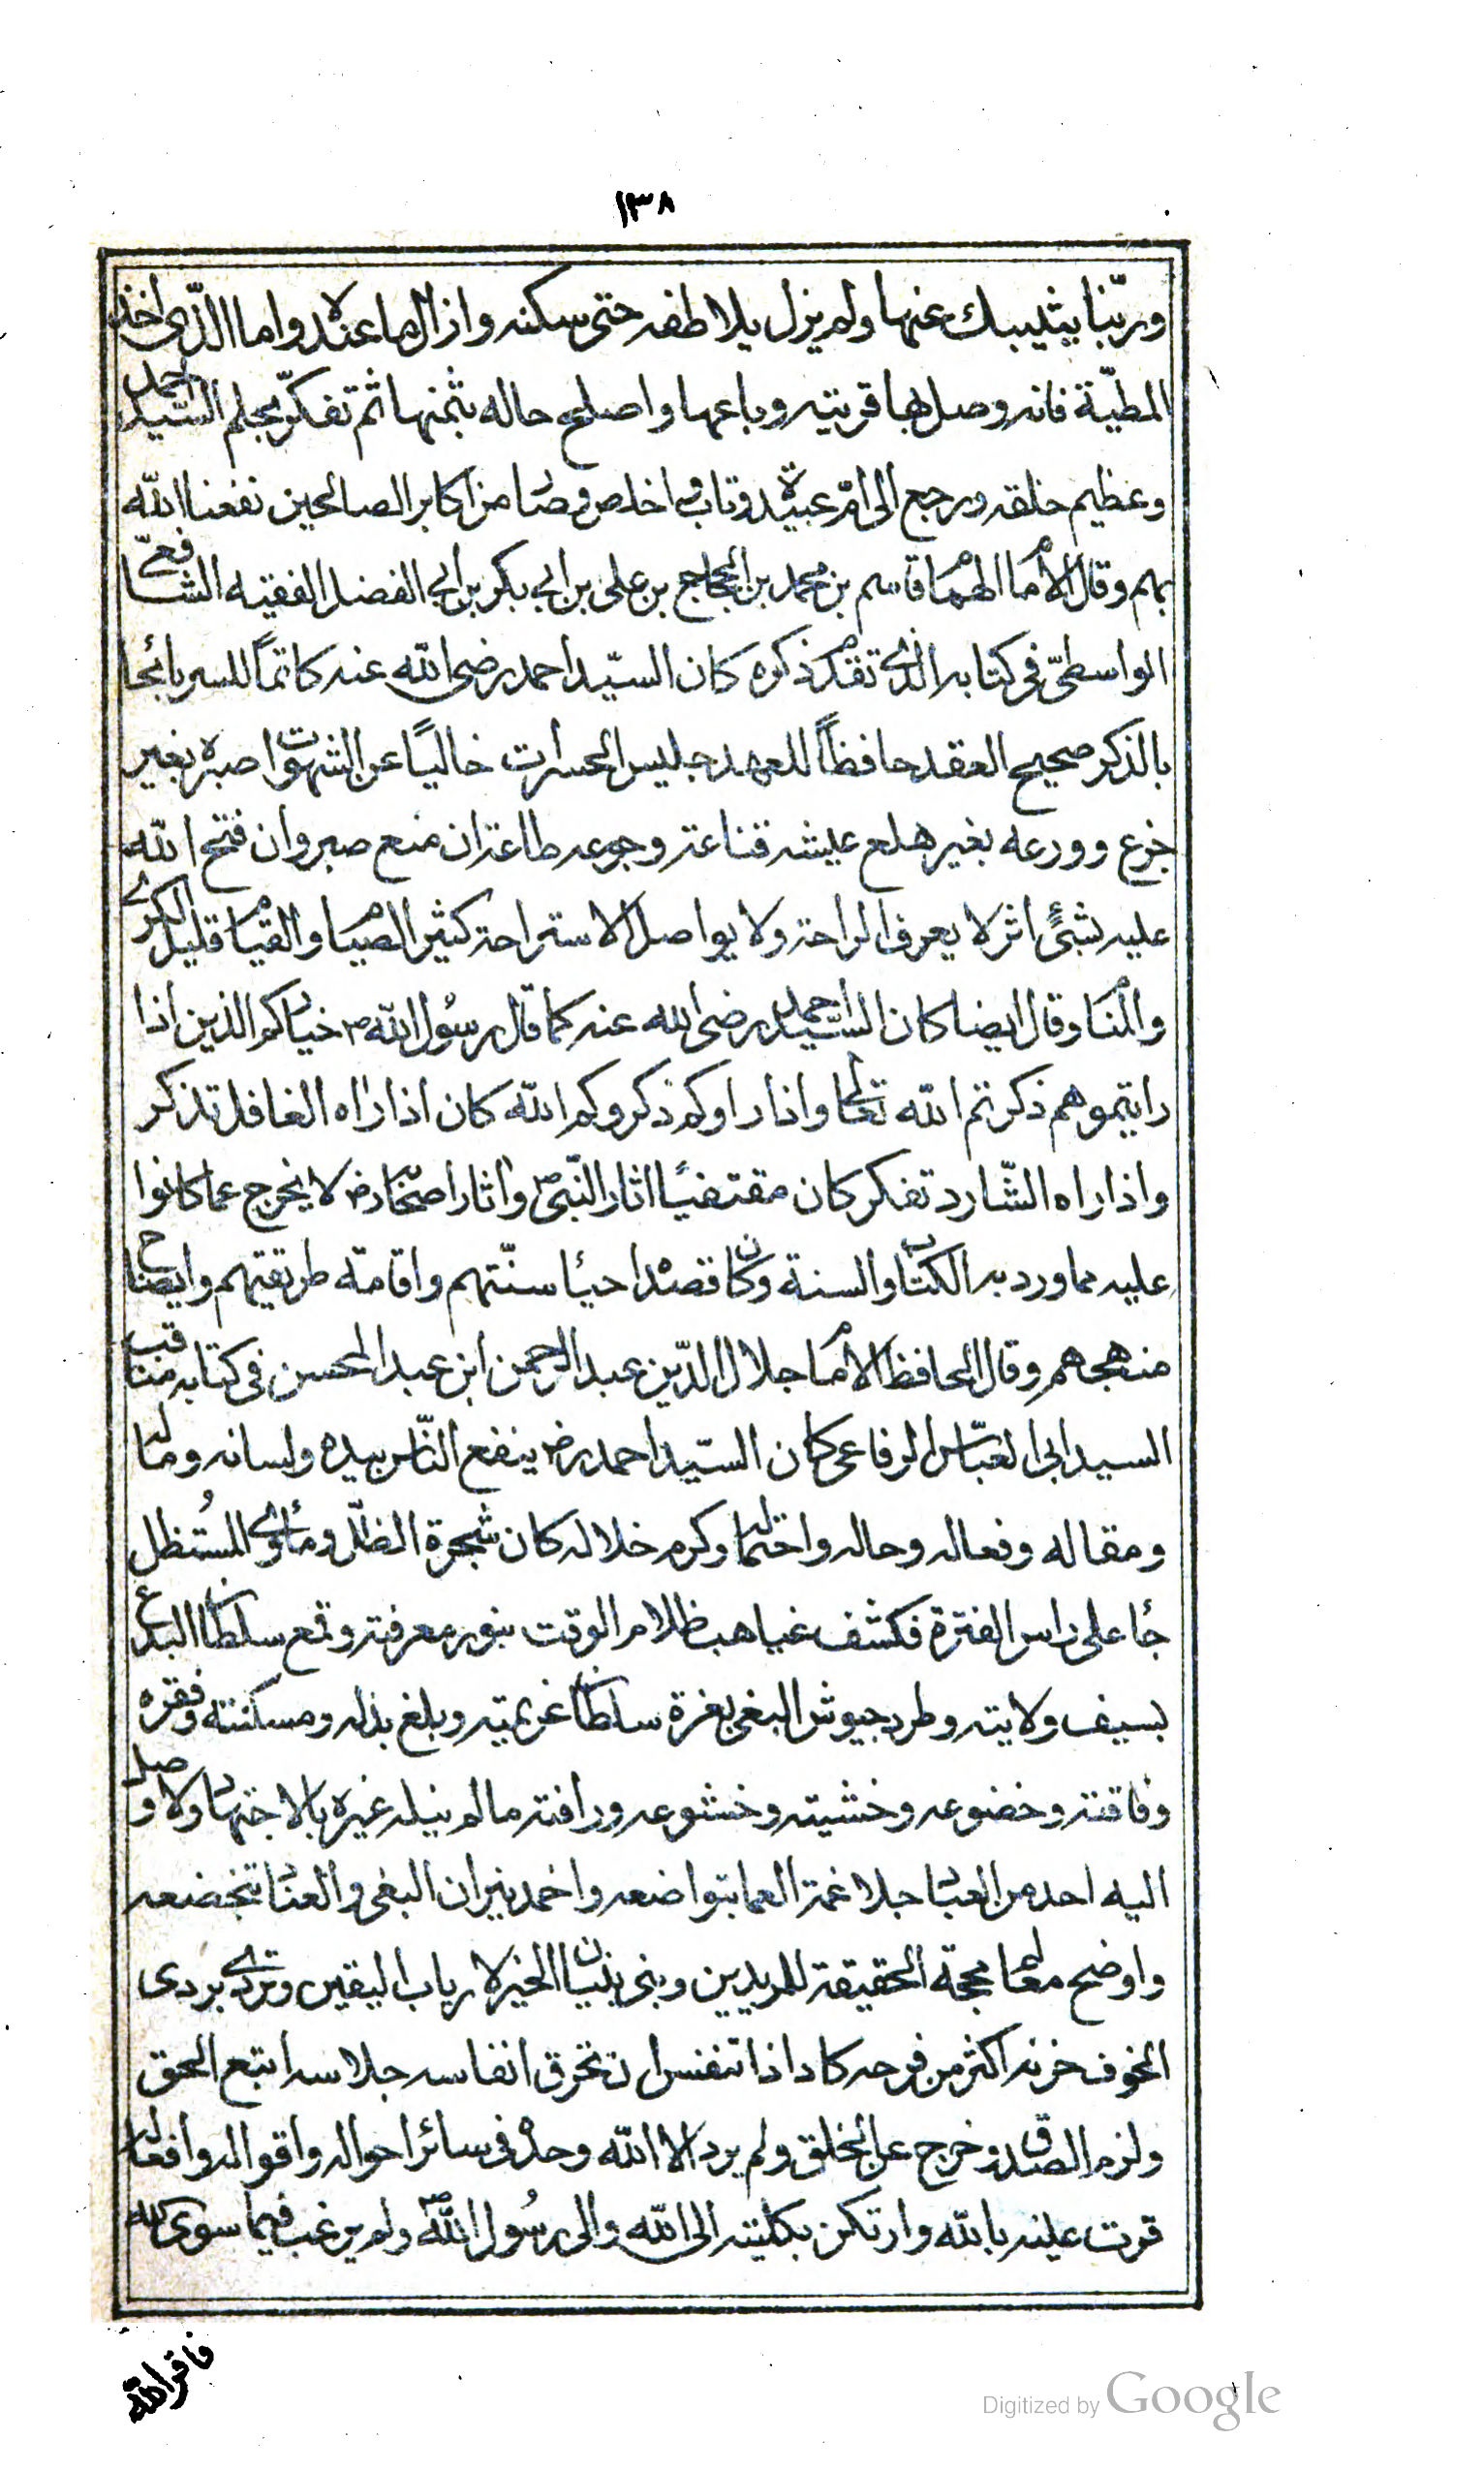 ١٣٨
وربّنا يثيبك عنها ولم يزل يلاطفه حتى سكنه وازال ما عنده واما الذي اخذ
المطيّة فانه وصل بها قريته وباعها واصلح حاله بثمنها ثم تفكّر بحلم السّيد احمد
وعظيم خلقه ورجع الى امّ عبيدة وتاب واخلص وصار من اكابر الصالحين نفعنا الله
بهم وقال الامام الهمام قاسم بن محمد بن الحجاج بن علي بن ابي بكر بن ابي الفضل الفقيه الشافعيّ
الواسطيّ في كتابه الذي تقدم ذكره كان السيّد احمد رضي الله عنه كاتمًا للسر بائحا
بالذكر صحيح العقد حافظًا للعهد جليس الحسرات خاليًا عن الشهوات صبره بغير
جزع وورعه بغير هلع عيشه قناعة وجوعه طاعة ان منع صبر وان فتح الله
عليه بشئ اثر لا يعرف الراحة ولا يواصل الاستراحة كثير الصيام والقيام قليل الكرى
والمنام وقال ايضا كان السيد احمد رضي الله عنه كما قال رسول الله ص خياركم الذين اذا
رايتموهم ذكرتم الله تعالى واذا راوكم ذكروكم الله كان اذا راه الغافل تذكر
واذا راه الشّارد تفكر كان مقتفيًا اثار النّبيّ ص واثار اصحابه رض لا يخرج عما كانوا
عليه مما ورد به الكتاب والسنة وكان قصده احياء سنّتهم واقامة طريقتهم وايضاح
منهجهم وقال الحافظ الامام جلال الدّين عبد الرحمن ابن عبد المحسن في كتابه مناقب
السيد ابي العبّاس الرفاعي كان السيّد احمد رض ينفع النّاس بيده ولسانه وماله
ومقاله وفعاله وحاله واحتماله وكرم خلاله كان شجرة الظلّ ومأوى المُستظل
جاء على راس الفترة فكشف غياهب ظلام الوقت بنور معرفته وقمع سلطان البدع
بسيف ولايته وطرد جيوش البغي بعزة سلطان عزيمته وبلغ بذله ومسكنته وفقره
وفاقته وخضوعه وخشيته وخشوعه ورافته ما لم ينله غيره بالاجتهاد ولا وصل
اليه احد من العباد جلا غمة العما بتواضعه واخمد نيران البغي والعناد بتخضعه
واوضح معالم محجة الحقيقة للمريدين وبنى بنيان الخير لارباب اليقين وتردى بردى
الخوف حزنه اكثر من فرحه كاد اذا تنفس ان تحرق انفاسه جلاسه اتبع الحق
ولزم الصدق وخرج عن الخلق ولم يرد الا الله وحده في سائر احواله واقواله وافعاله
قرت عينه بالله وارتكن بكليته الى الله والى رسُول الله ص ولم يرغب فيما سوى الله
فاقر الله
Digitized by Google